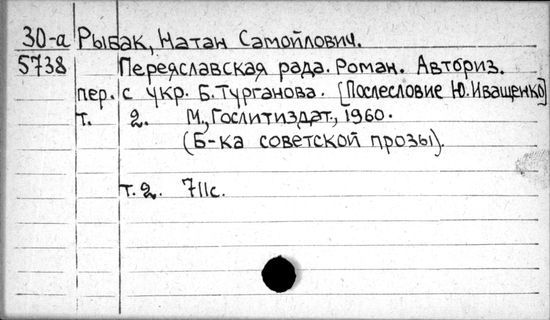 30-а Рыбак, Натан Самойлович.
5738 Переяславская рада. Роман. Авториз.
пер. с укр. Б. Турганова. [Послесловие Ю. Иващенко]
т. 2. М., Гослитиздат, 1960.
(Б-ка советской прозы).
т. 2. 711с.